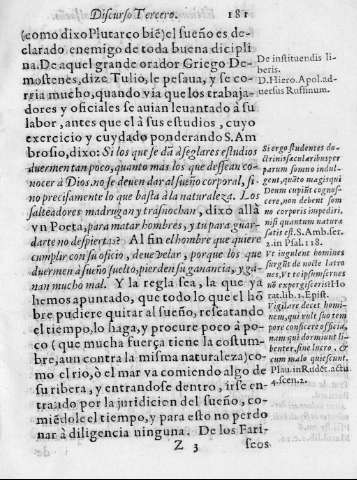 Discurso Tercero. 181
(como dixo Plutarco biē) el sueño es de-
clarado enemigo de toda buena dicipli
na. De aquel grande orador Griego De-
mostenes, dize Tulio, le pesaua, y se co-
rria mucho, quando via que los trabaja-
dores y oficiales se auian leuantado à su
labor, antes que el à sus estudios, cuyo
exercicio y cuydado ponderando S. Am
brosio, dixo: Si los que se dā à seglares estudios
duermen tan poco, quanto mas los que dessean co-
nocer à Dios, no se deuen dar al sueño corporal, si-
no precisamente lo que basta à la naturaleza. Los
salteadores madrugan y trasnochan, dixo allà
vn Poeta, para matar hombres, y tu para guar-
darte no despiertas? Al fin el hombre que quiere
cumplir con su oficio, deue velar, porque los que
duermen à sueño suelto, pierden su ganancia, y ga-
nan mucho mal. Y la regla sea, la que ya
hemos apuntado, que todo lo que el hō
bre pudiere quitar al sueño, rescatando
el tiempo, lo haga, y procure poco à po-
co (que mucha fuerça tiene la costum-
bre, aun contra la misma naturaleza) co-
mo el rio, ò el mar va comiendo algo de
su ribera, y entrandose dentro, irse en-
trando por la juridicion del sueño, co-
miēdole el tiempo, y para esto no perdo
nar à diligencia ninguna. De los Fari-
Z 3 seos
De instituendis li-
beris.
D. Hiero. Apol. ad-
uersus Ruffinum.
Si ergo studentes do-
ctrinis sæcularibus per
parum somno indul-
gent, quāto magis qui
Deum cupiūt cognos-
cere, non debent som
no corporis impediri,
nisi quantum natura
satis est. S. Amb. ser.
12. in Psal. 118.
Vt iugulent homines
surgūt de nocte latro
nes, Vt te ipsum serues
nō expergisceris? Ho
rat. lib. 1. Epist.
Vigilare decet homi-
nem, qui vult suo tem
pore conficere officia,
nam qui dormiunt li-
benter, sine lucro, &
cum malo quiescunt.
Plau. in Rudēt. actu.
4. scen. 2.